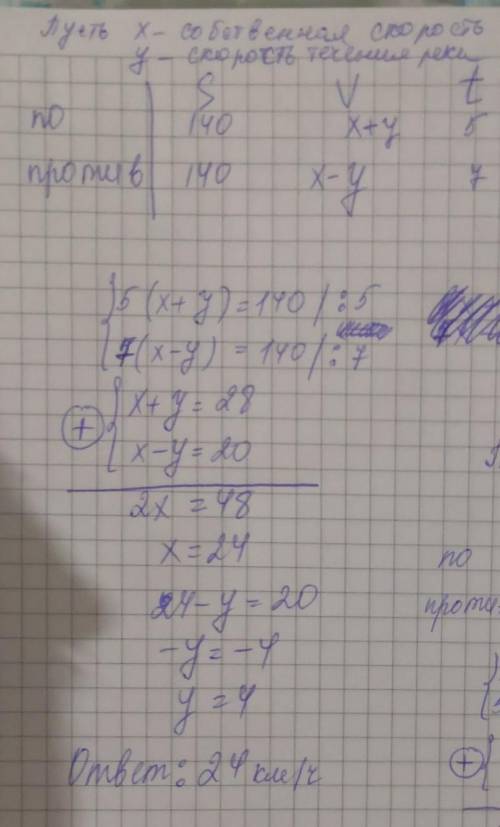 Пусть x - собственная скорость
y - скорость течения реки
S V t
по 140 x+y 5
против 140 x-y 7
5(x+y)=140/:5
7(x-y)=140/:7
x+y=28
+
x-y=20
2x=48
x=24
24-y=20
-y=-4
y=4
Ответ: 24 км/ч
по
проти
+